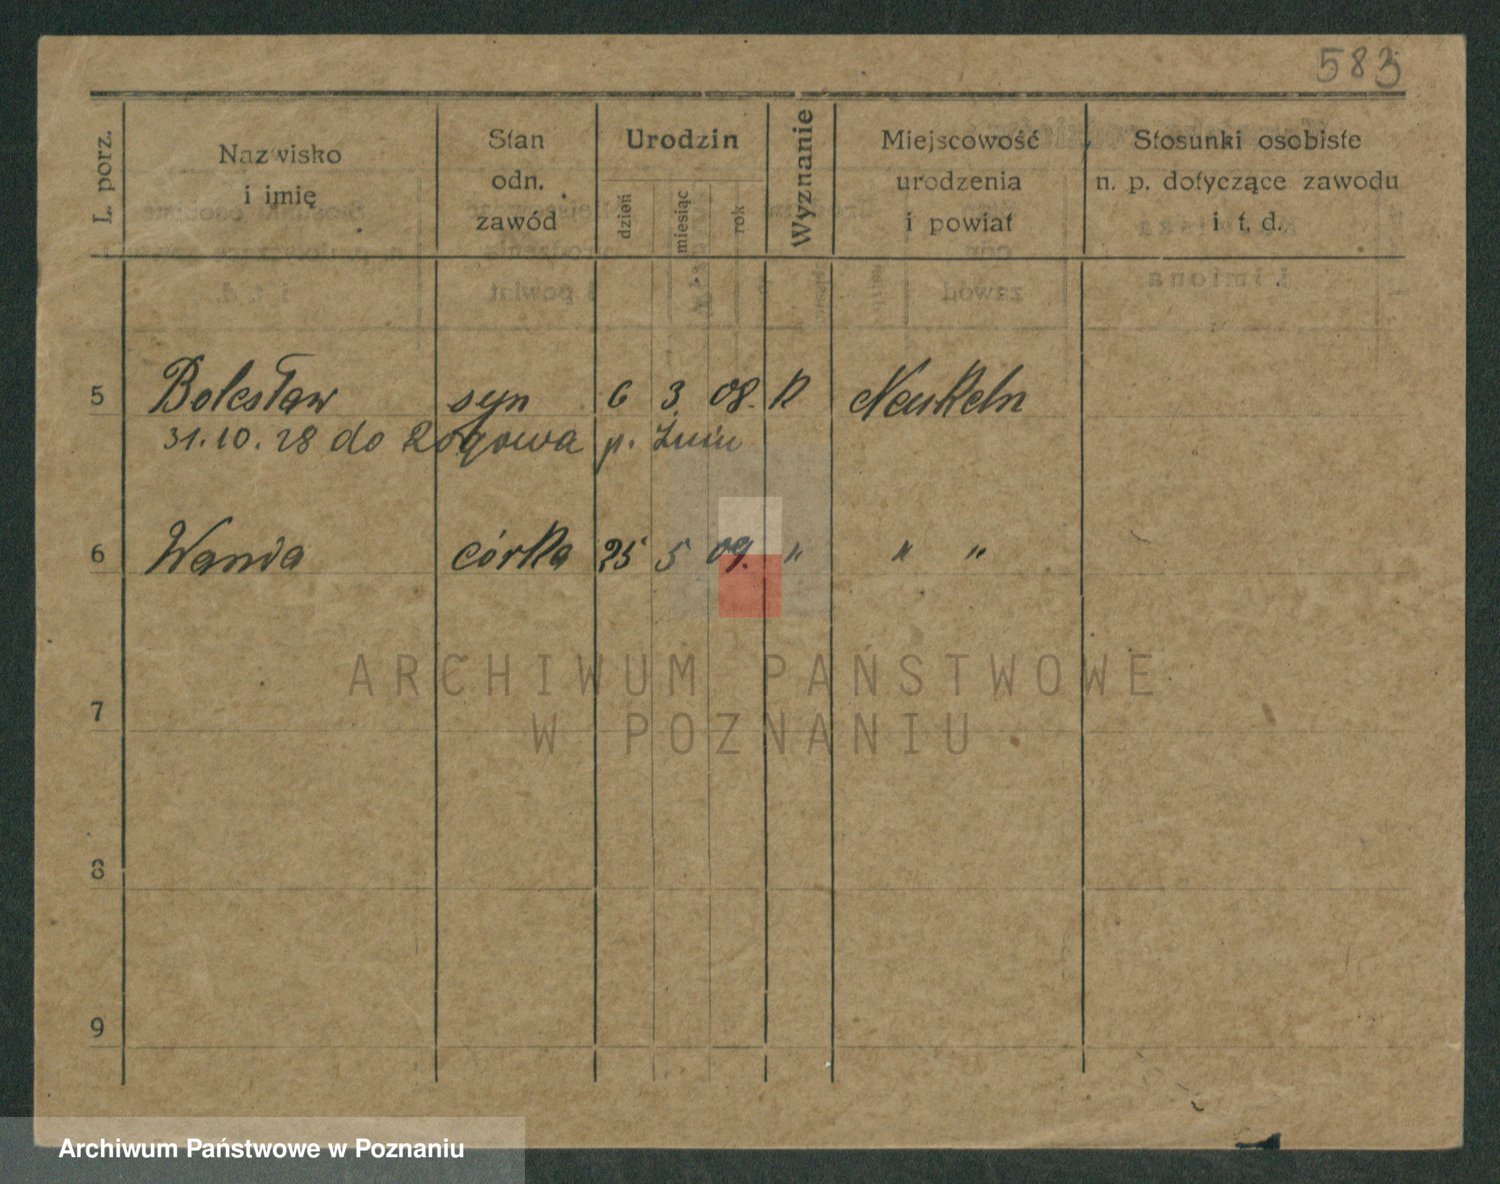 583
L. porz.
Nazwisko
i imię
Stan
odn.
zawód
Urodzin
dzień
miesiąc
rok
Wyznanie
Miejscowość
urodzenia
i powiat
Stosunki osobiste
n. p. dotyczące zawodu
i t. d.
5 Bolesław syn 6 3 08. K Neukeln
31.10.28 do Rogowa p. Żnin
6 Wanda córka 25 5 09. " " "
ARCHIWUM PAŃSTWOWE
W POZNANIU
7
8
9
Archiwum Państwowe w Poznaniu